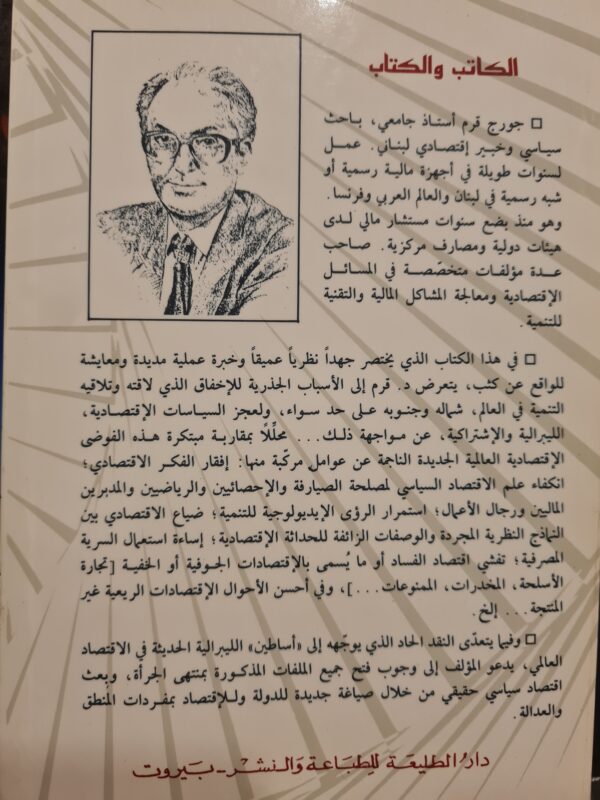 الكاتب والكتاب
□ جورج قرم أستاذ جامعي، باحث
سياسي وخبير إقتصادي لبناني. عمل
لسنوات طويلة في أجهزة مالية رسمية أو
شبه رسمية في لبنان والعالم العربي وفرنسا.
وهو منذ بضع سنوات مستشار مالي لدى
هيئات دولية ومصارف مركزية. صاحب
عدة مؤلفات متخصّصة في المسائل
الإقتصادية ومعالجة المشاكل المالية والتقنية
للتنمية.
□ في هذا الكتاب الذي يختصر جهداً نظرياً عميقاً وخبرة عملية مديدة ومعايشة
للواقع عن كثب، يتعرض د. قرم إلى الأسباب الجذرية للإخفاق الذي لاقته وتلاقيه
التنمية في العالم، شماله وجنوبه على حد سواء، ولعجز السياسات الإقتصادية،
الليبرالية والإشتراكية، عن مواجهة ذلك... محلِّلًا بمقاربة مبتكرة هذه الفوضى
الإقتصادية العالمية الجديدة الناجمة عن عوامل مركّبة منها: إفقار الفكر الاقتصادي؛
انكفاء علم الاقتصاد السياسي لمصلحة الصيارفة والإحصائيين والرياضيين والمدبرين
الماليين ورجال الأعمال؛ استمرار الرؤى الإيديولوجية للتنمية؛ ضياع الاقتصادي بين
النماذج النظرية المجردة والوصفات الزائفة للحداثة الإقتصادية؛ إساءة استعمال السرية
المصرفية؛ تفشي اقتصاد الفساد أو ما يُسمى بالإقتصادات الجوفية أو الخفية [تجارة
الأسلحة، المخدرات، الممنوعات...]، وفي أحسن الأحوال الإقتصادات الريعية غير
المنتجة... إلخ.
□ وفيما يتعدّى النقد الحاد الذي يوجّهه إلى «أساطين» الليبرالية الحديثة في الاقتصاد
العالمي، يدعو المؤلف إلى وجوب فتح جميع الملفات المذكورة بمنتهى الجرأة، وبعث
اقتصاد سياسي حقيقي من خلال صياغة جديدة للدولة وللإقتصاد بمفردات المنطق
والعدالة.
دار الطليعة للطباعة والنشر - بيروت